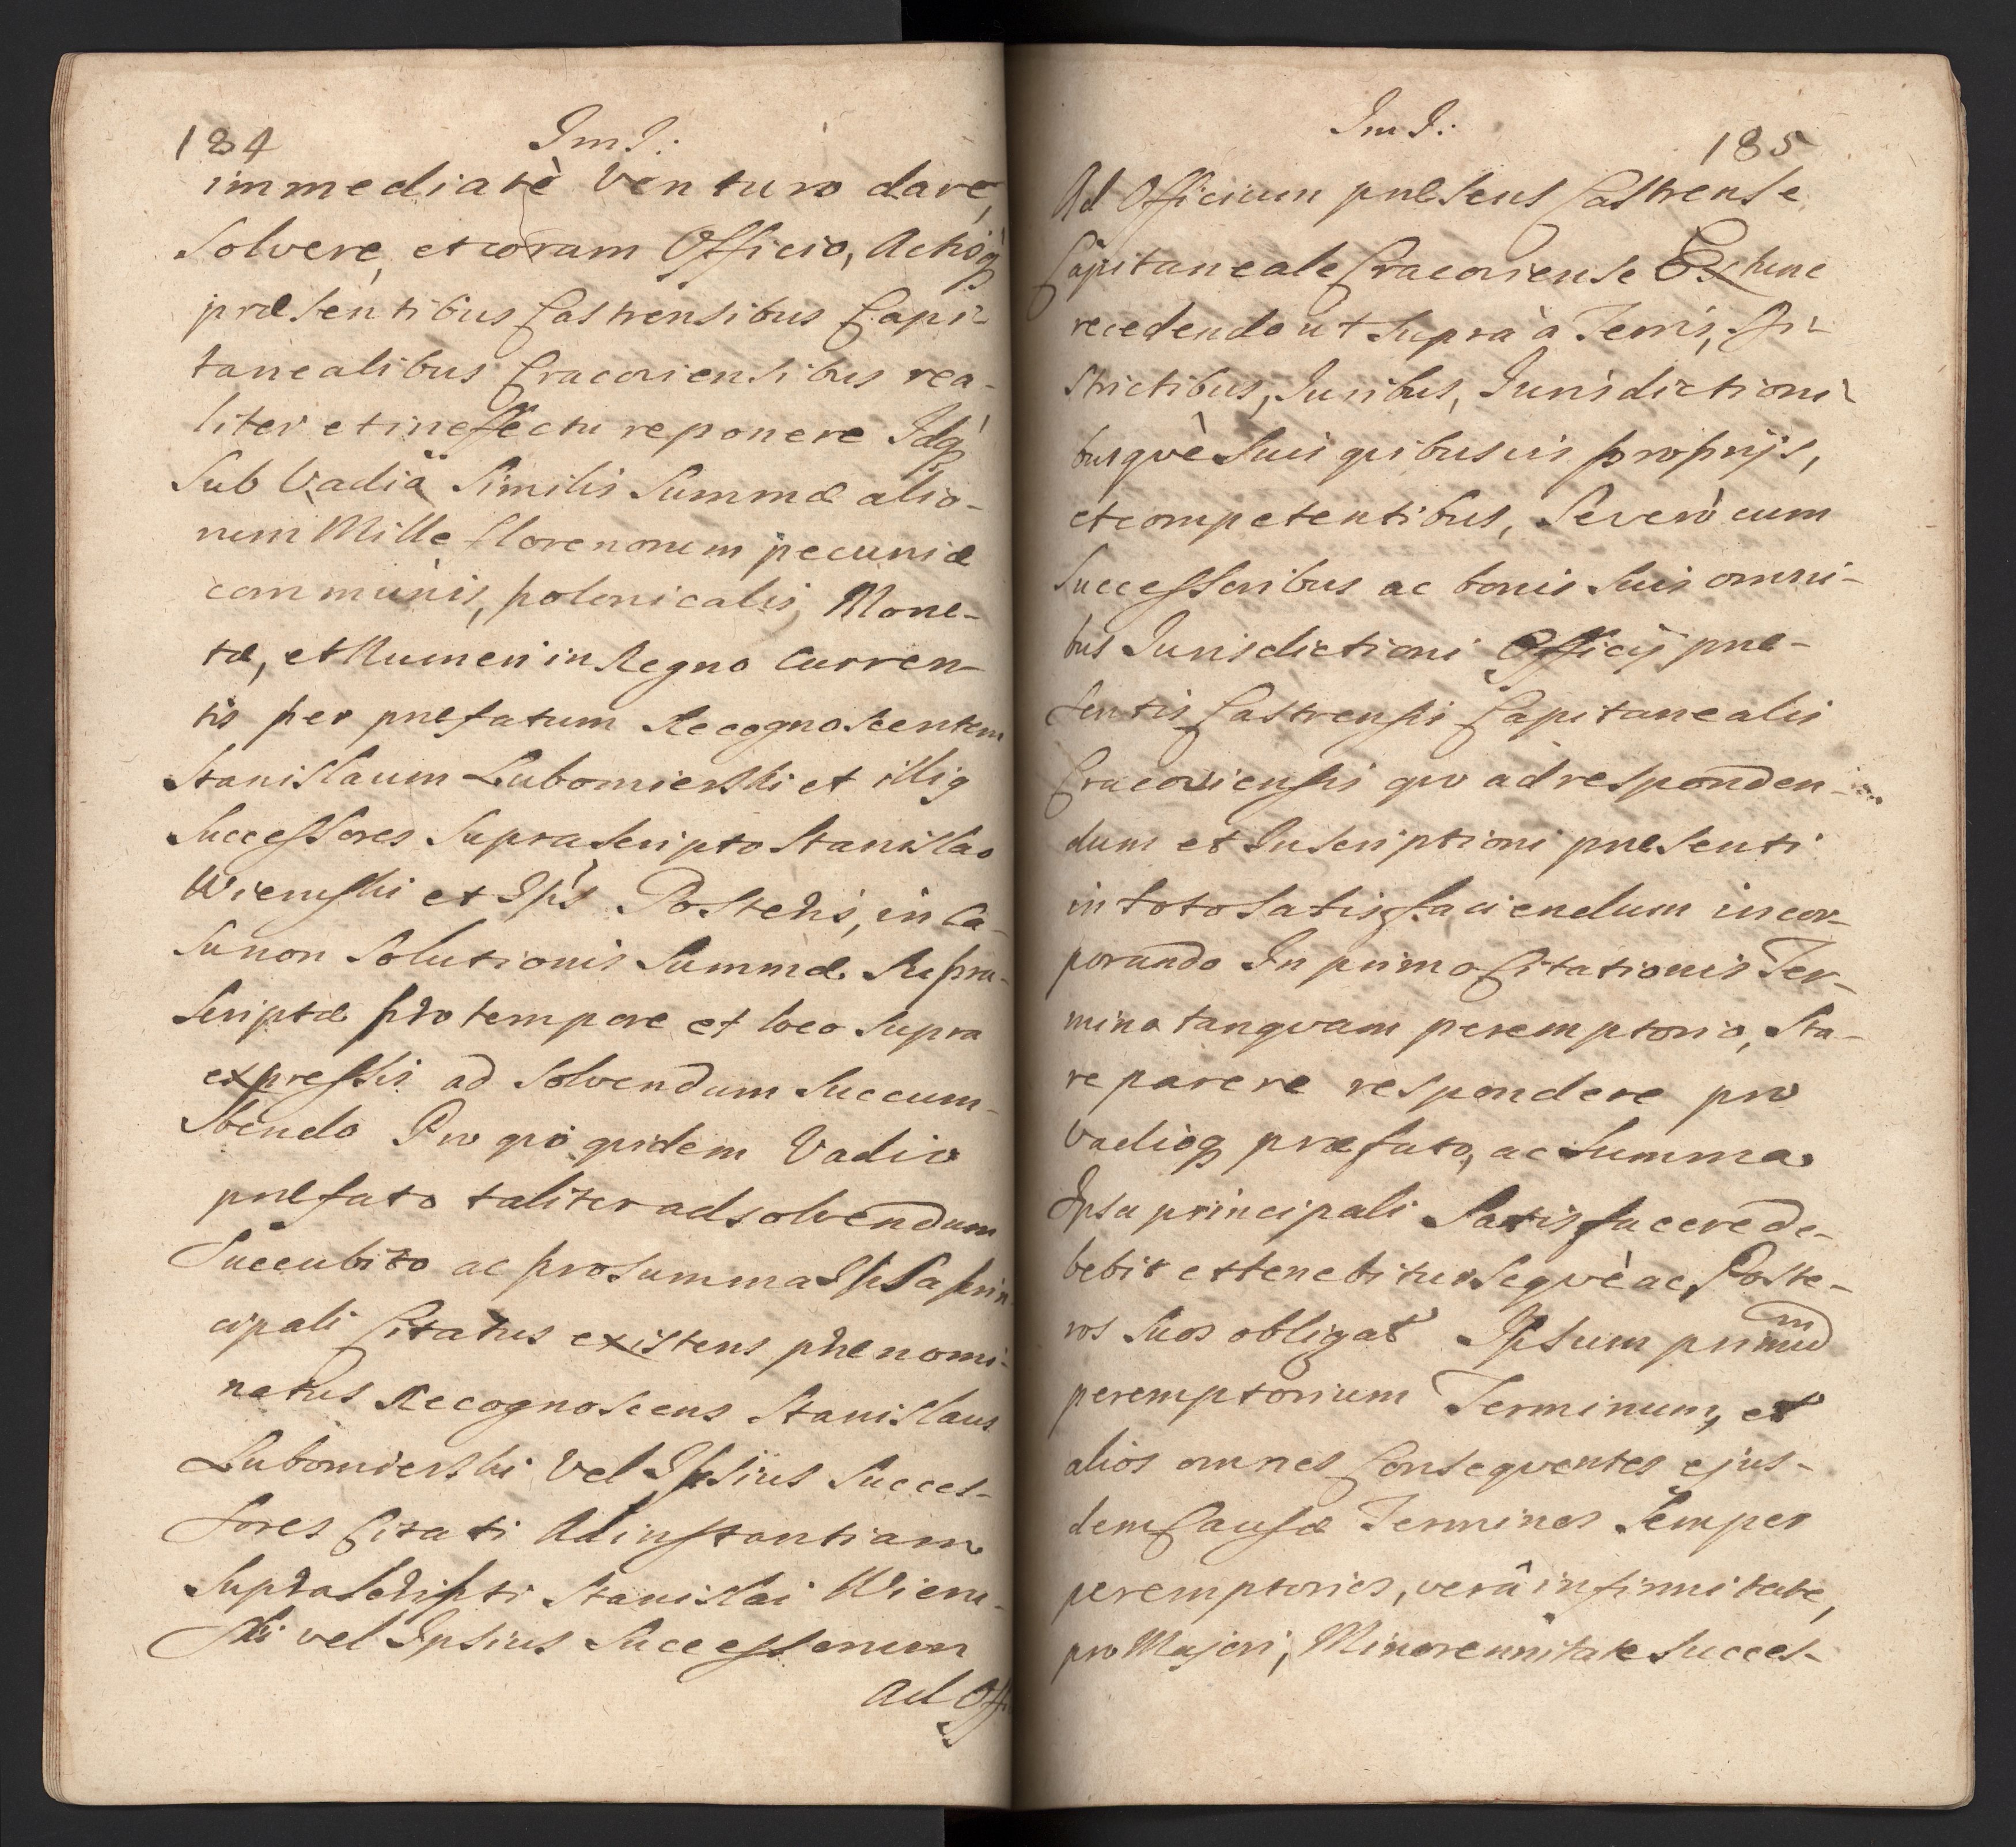 184 Im I:
immediatè venturo dare,
Solvere, et coram Officio, Actisq́
præsentibus Castrensibus Capi-
tanealibus Cracoviensibus rea-
liter et in effectu reponere Idq́
Sub Vadiâ Similis Summæ alio-
rum Mille florenorum pecuniæ
communis, polonicalis, Mone-
tæ, et Numeri in Regno Curren-
tis per præfatum Recognoscentem
Stanislaum Lubomierski et illiq
Successores Suprascripto Stanislao
Wiemski et Ips Posteris, in Ca-
su non Solutionis Summæ Supra-
scriptæ pro tempore et loco Supra
expressis ad Solvendum Succum-
bendo Pro qvo qvidem Vadio
præfato taliter ad solvendum
Succubito ac pro Summa Ipsa prin-
cipali Citatus existens prænomi-
natus Recognoscens Stanislaus
Lubomierski vel Ipsius Succes-
sores Citati Ad instantiam
Suprascripti Stanislai Wiem-
ski vel Ipsius Successorum
Ad Offi
Im I: 185
Ad Officium præsens Castrense
Capitaneale Cracoviense Ex tunc
recedendo ut Suprà à Terris, Di-
strictibus, Juribus, Jurisdictioni-
busqvè Suis qvibusvis proprijs,
et competentibus, Se verò cum
Successoribus ac bonis Suis omni-
bus Jurisdictioni Officij præ-
sentis Castrensis Capitanealis
Cracoviensis qvo ad responden-
dum et Inscriptioni præsenti
in toto Satisfaciendum incor-
porando In primo Citationis Ter-
mino tanqvam peremptorio, Sta-
re parere respondere pro
Vadioq præfato, ac Summa
Ipsa principali Satisfacere de-
bebit et tenebitur Seqvè ac Poste-
ros Suos obligat Ipsum primum
peremptorium Terminum, et
alios omnes Conseqventes ejus-
dem Causæ Terminos Semper
peremptorios, verâ infirmitate,
pro Majori, Minorennitate Succes-